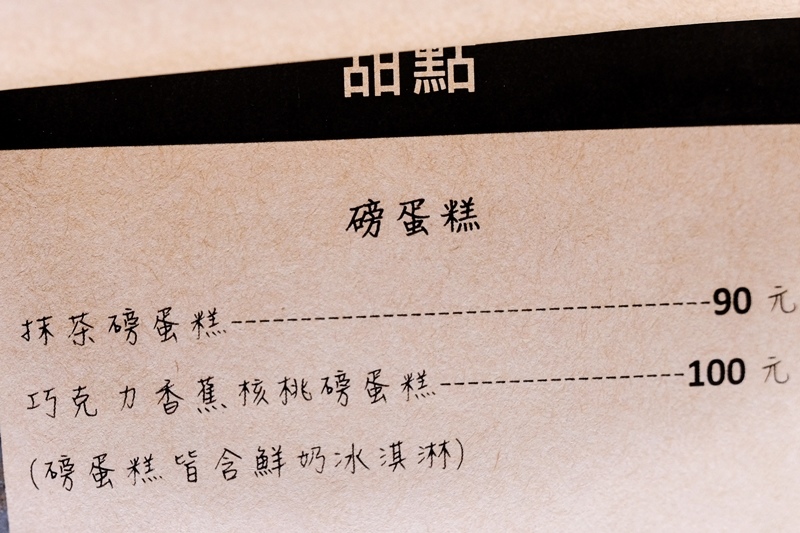 甜點
磅蛋糕
抹茶磅蛋糕--------------------------------90 元
巧克力香蕉核桃磅蛋糕----------------100 元
(磅蛋糕皆含鮮奶冰淇淋)